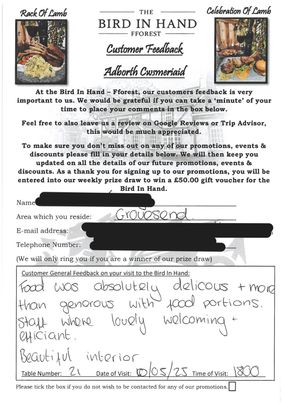 Rack Of Lamb
Celebration Of Lamb
THE
BIRD IN HAND
FFOREST
Customer Feedback
Adborth Cwsmeriaid
At the Bird In Hand – Fforest, our customers feedback is very
important to us. We would be grateful if you can take a 'minute' of your
time to place your comments in the box below.
Feel free to also leave us a review on Google Reviews or Trip Advisor,
this would be much appreciated.
To make sure you don't miss out on any of our promotions, events &
discounts please fill in your details below. We will then keep you
updated on all the details of our future promotions, events &
discounts. As a thank you for signing up to our promotions, you will be
entered into our weekly prize draw to win a £50.00 gift voucher for the
Bird In Hand.
Name
Area which you reside: Grovesend
E-mail address:
Telephone Number:
(We will only ring you if you are a winner of our prize draw)
Customer General Feedback on your visit to the Bird In Hand:
Food was absolutely delicous + more
than generous with food portions.
Staff where lovely welcoming +
efficiant.
Beautiful interior
Table Number: 21 Date of Visit: 10/05/25 Time of Visit: 1800
Please tick the box if you do not wish to be contacted for any of our promotions.